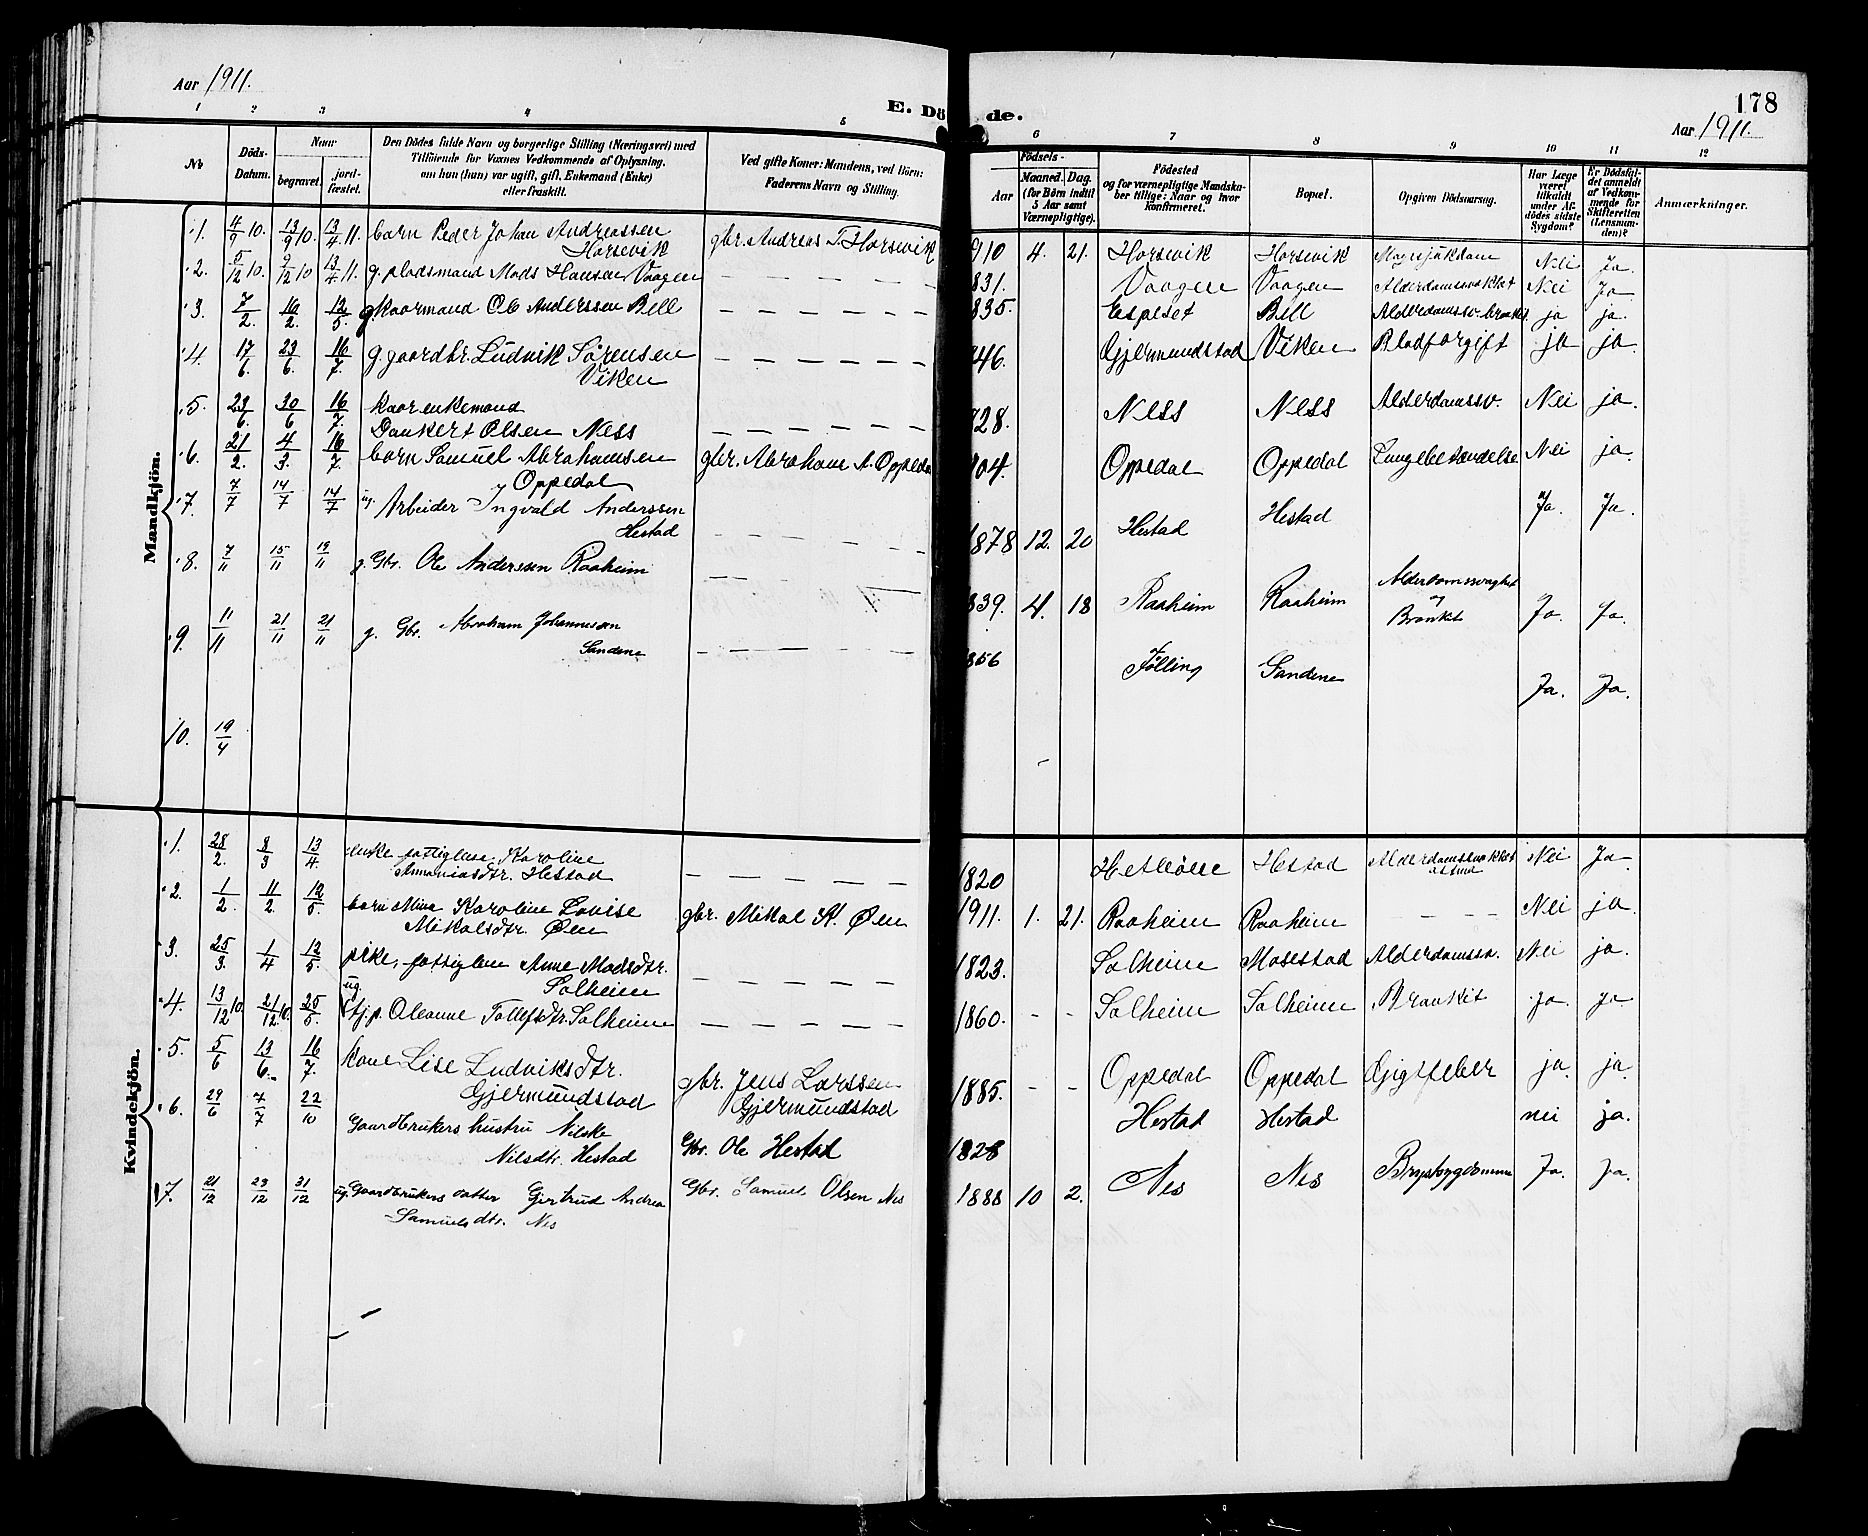 Aar 1911.
E. Dö de.
178
Aar 1911.
1 2 3 4 5 6 7 8 9 10 11 12
No
Döds-Datum.
Naar
begravet.
jord-fæstet.
Den Dödes fulde Navn og borgerlige Stilling (Næringsvei) med
Tilföiende for Voxnes Vedkommende af Oplysning,
om han (hun) var ugift, gift, Enkemand (Enke)
eller fraskilt.
Ved gifte Koner: Mandens, ved Börn:
Faderens Navn og Stilling.
Födsels-
Aar
Maaned. Dag.
(for Börn indtil
5 Aar samt
Værnepligtige).
Födested
og for værnepligtige Mandska-
ber tillige: Naar og hvor
konfirmeret.
Bopæl.
Opgiven Dödsaarsag.
Har Læge
været
tilkaldt
under Af-
dödes sidste
Sygdom?
Er Dödsfal-
det anmeldt
af Vedkom-
mende for
Skifteretten
(Lensman-
den)?
Anmærkninger.
Mandkjön.
1. 4/9 10. 13/9 10. 13/4 11. barn Peder Johan Andreassen gbr. Andreas T. Horsevik 910 4. 21. Horsevik Horsevik Nei Ja.
Horsevik
2. 5/12 10. 9/12 10 13/4 11. g. pladsmand Mads Hansen Vaagen — — — — — 831. Vaagen Vaagen Alderdomssvakhet Nei Ja
3. 7/2. 16/2. 12/5. g. kaarmand Ole Anderssen Bell — — — — — 835. Espeset Bell Alderdomssv. bronkit ja ja.
4. 17/6. 23/6. 16/7. g. gaardbr. Ludvik Sørensen — — — — — 46. Gjermundstad Viken Blodforgift ja ja.
Viken
5. 23/6. 30/6 16/7. Kaarenkemand 28. Ness Ness Alderdomssv. Nei ja.
Dankert Olsen Ness — — — — —
6. 21/2. 4/3. 16/7. barn Samuel Abrahamsen gbr. Abraham A. Oppedal 04. Oppedal Oppedal Lungebetændelse Nei ja.
Oppedal
7. 7/7 14/7 14/7 ug. Arbeider Ingvald Anderssen 1878 12. 20 Hestad Hestad Ja. Ja.
Hestad — — — — —
8. 7/11 15/11 19/11 g. Gbr. Ole Anderssen Raaheim — — 839. 4. 18 Raaheim Raaheim Alderdomssvaghet
og
Bronkit Ja. Ja.
9. 11/11 21/11 21/11 g. Gbr. Abraham Johannessen 856 Følling Sandene Ja. Ja.
Sandene — — — — —
10. 19/4
Kvindekjön.
1. 28/2. 8/3 13/4. enke fattiglem Karoline 1820 Hestad Alderdomssvakhet Nei Ja
Ananiasdtr. Hestad — — — — —
2. 1/2 11/2. 12/5. barn Mina Karoline Lovise gbr. Mikal K. Øen 1911. 1. 21. Raaheim Raaheim — — — Nei ja.
Mikalsdtr. Øen
3. 25/3. 1/4 12/5. pike, fattiglem Anne Madsdtr. 1823. Solheim Masestad Alderdomssv. Nei ja.
ug. Solheim — — — — —
4. 13/12 10. 21/12 10. 25/5. tj. p. Oleanne Tollefsdtr. Solheim — — — — — 1860. - - Solheim Solheim Bronkit Ja. Ja
5. 5/6 13/6. 16/7. Kone Lise Ludviksdtr. gbr. Jens Larssen 1885. - - Oppedal Oppedal Gigtfeber ja. ja.
Gjermundstad Gjermundstad
6. 29/6 7/7 22/10 Gaardbrukers hustru Nilske Gbr. Ole Hestad 1828 Hestad Hestad nei ja.
Nilsdtr. Hestad
7. 21/12 29/12 31/12 ug. Gaardbrukers datter Gjertrud Andrea Gbr. Samuel Olsen Nes 1888 10 2. Nes Nes Brystsygdomme Ja. Ja.
Samuelsdtr. Nes